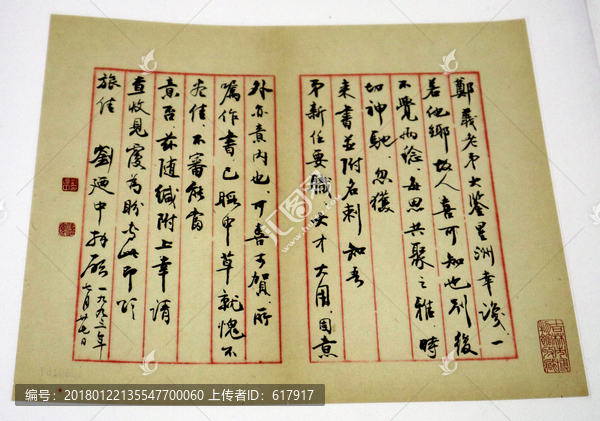 鄭義老弟大鑒星洲幸讌一
若他鄉故人喜可知也別後
不覺兩稔每思共聚之雅時
切神馳忽獲
來書並附名刺知吾
弟新任要職大才大用固意
外亦意內也可喜可賀所
囑作書已賑中草就愧不
尽佳不審能當
意否茲随緘附上幸請
查收見覆為盼專此即頌
旅佳 劉廼中拜啟 一九九三年
七月廿七日
编号:20180122135547700060 上传者ID:617917